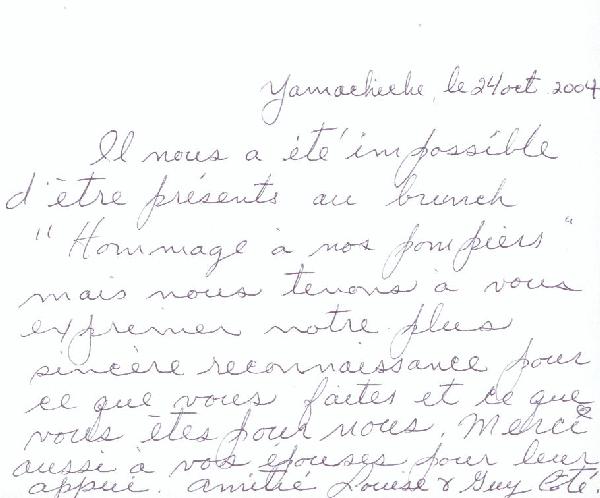 Yamachiche, le 24 oct 2004
Il nous a été impossible
d'être présents au brunch
"Hommage à nos pompiers"
mais nous tenons à vous
exprimer notre plus
sincère reconnaissance pour
ce que vous faites et ce que
vous êtes pour nous. Merci
aussi à vos épouses pour leur
appui. Amitié Louise & Guy Côté.